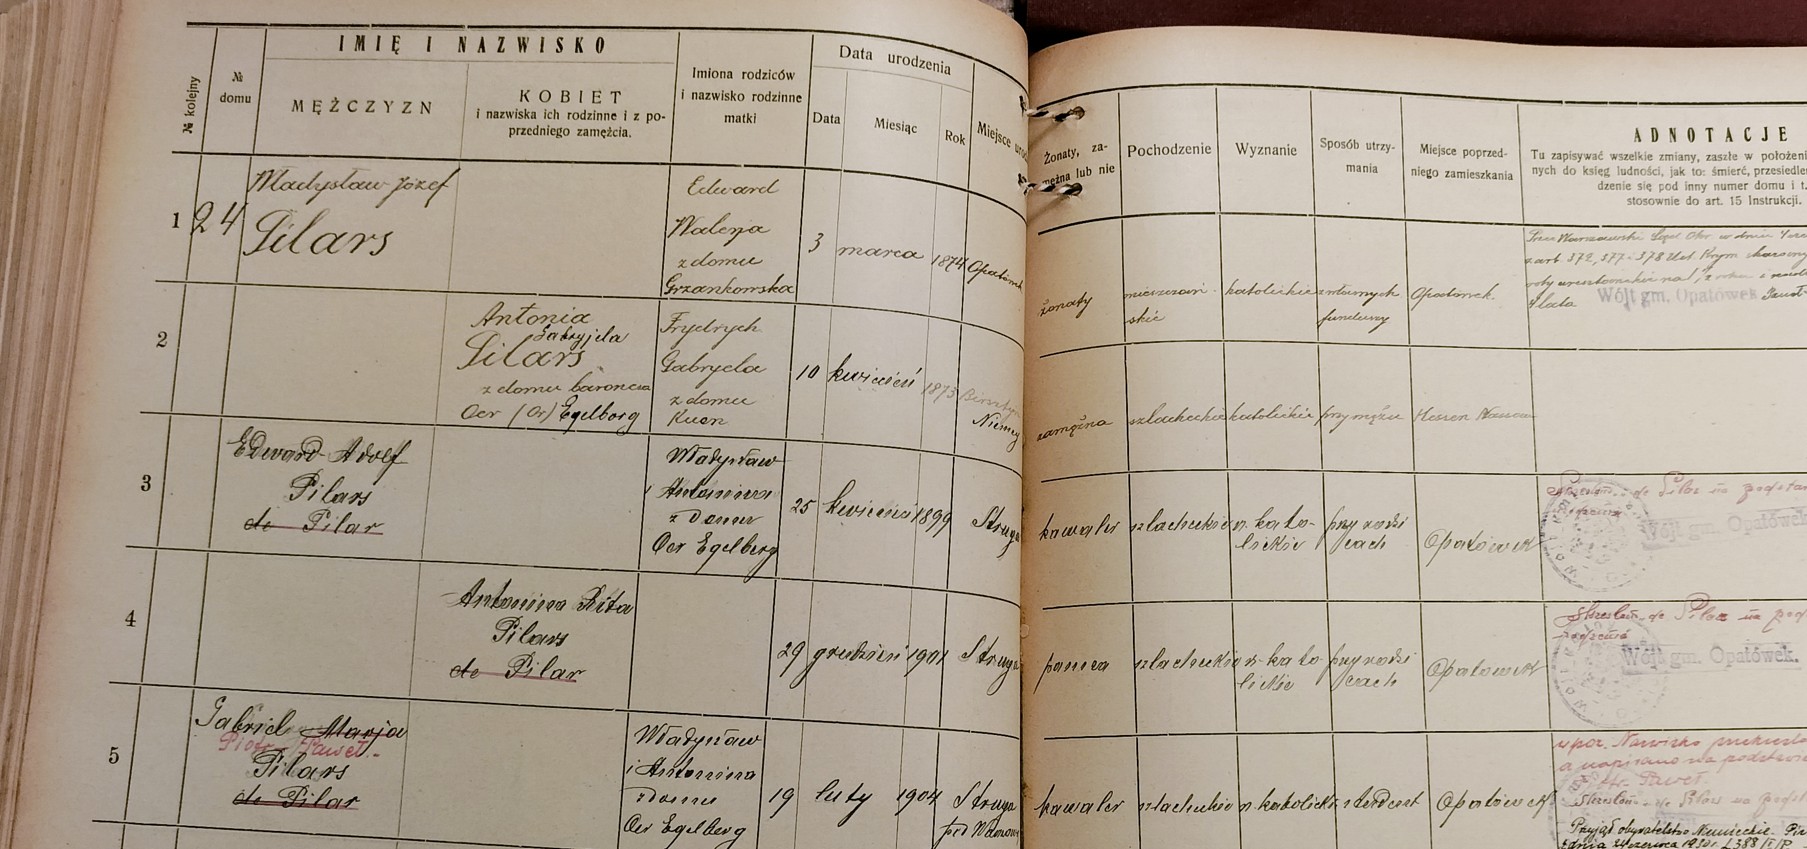 № kolejny
№
domu
IMIĘ I NAZWISKO
MĘŻCZYZN
KOBIET
i nazwiska ich rodzinne i z po-
przedniego zamężcia.
Imiona rodziców
i nazwisko rodzinne
matki
Data urodzenia
Data
Miesiąc
Rok
Miejsce uro
Żonaty, za-
mężna lub nie
Pochodzenie
Wyznanie
Sposób utrzy-
mania
Miejsce poprzed-
niego zamieszkania
ADNOTACJE
Tu zapisywać wszelkie zmiany, zaszłe w położeni
nych do ksiąg ludności, jak to: śmierć, przesiedle
dzenie się pod inny numer domu i t.
stosownie do art. 15 Instrukcji.
1
24
Władysław Józef
Pilars
Edward
Walerja
z domu
Grzankowska
3
marca
1874
Opatówek
żonaty
mieszczań-
skie
katolickie
z własnych
funduszy
Opatówek
Wójt gm. Opatówek
2
Antonia
Gabryjela
Pilars
z domu baronesa
Oer (Or) Egelborg
Frydrych
Gabryela
z domu
Kuen
10
kwiecień
1873
Niemcy
zamężna
szlacheckie
katolickie
przy mężu
Hessen Nassau
3
Edward-Adolf
Pilars
de Pilar
Władysław
i Antonina
z Domu
Oer Egelberg
25
kwiecień
1899
Struga
kawaler
szlacheckie
r. kato-
lickie
przy rodzi
cach
Opatówek
Skreślono de Pilar na podsta
Wójt gm. Opatówek
4
Antonina Rita
Pilars
de Pilar
29
grudzień
1901
Struga
panna
szlacheckie
r. kato
lickie
przy rodzi
cach
Opatówek
Skreślono de Pilar na pod
Wójt gm. Opatówek.
5
Gabriel Marja
Piotr Paweł.-
Pilars
de Pilar
Władysław
i Antonina
z domu
Oer Egelberg
19
luty
1904
Struga
kawaler
szlacheckie
r. katolick.
student
Opatówek
a napisano na podstawie
Piotr Paweł
Skreślono de Pilar na podst
Przyjął obywatelstwo Niemieckie.
z dnia 24 czerwca 1930 r. L 388/II/P